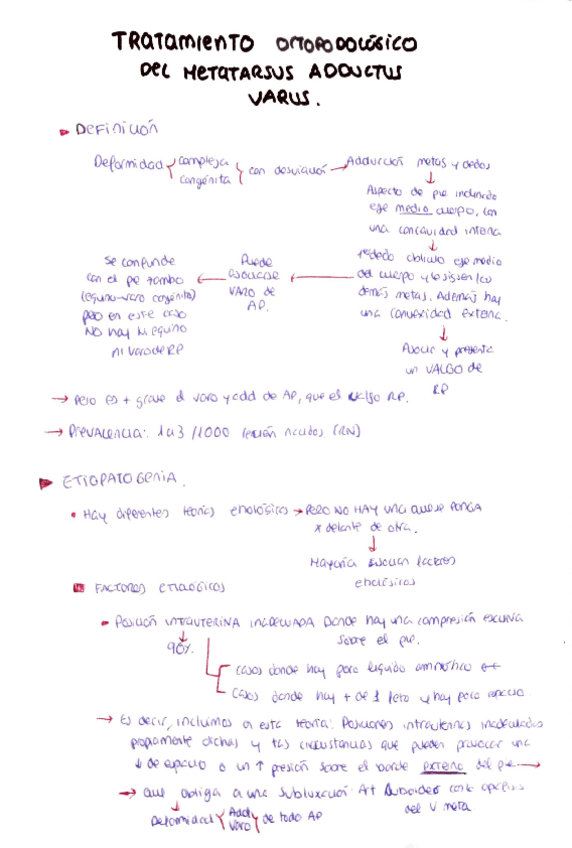 TRATAMIENTO ORTOPODOLÓGICO
DEL METATARSUS ADDUCTUS
VARUS.
DEFINICIÓN
Deformidad compleja congénita con desviación → Adducción metas y dedos
Aspecto de pie inclinado
eje medio cuerpo, con
una concavidad interna
1er dedo oblicuo eje medio
del cuerpo y lo siguen los
demás metas. Además hay
una convexidad externa.
Asocia y presenta
un VALGO de
RP
Puede
asociarse
VARO de
AP.
Se confunde
con el pie zambo
(equino-varo congénito)
pero en este caso
NO hay ni equino
ni varo de RP
→ Pero es + grave el varo y add de AP, que el valgo RP.
→ Prevalencia: 1 a 3 /1000 recién nacidos (RN)
ETIOPATOGENIA.
• Hay diferentes teorías etiológicas → PERO NO HAY UNA que se PONGA
x delante de otra.
Mayoría evocan factores
etiológicos
FACTORES ETIOLÓGICOS
Posición INTRAUTERINA INADECUADA Donde hay una compresión excesiva
sobre el pie.
90%.
casos donde hay poco líquido amniótico
casos donde hay + de 1 feto y hay poco espacio.
→ Es decir, incluimos en esta teoría: Posiciones intrauterinas inadecuadas
propiamente dichas y las circunstancias que pueden provocar una
↓ de espacio o un ↑ presión sobre el borde externo del pie →
→ que obliga a una subluxación Art Cuboides con
del V meta
Deformidad Add Varo de todo AP